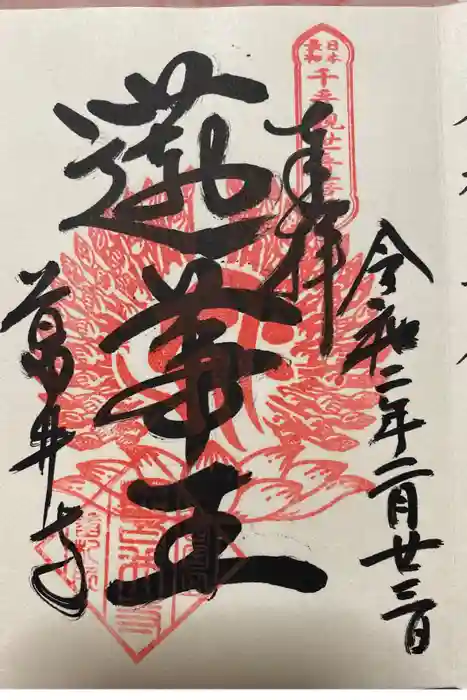 令和二年二月廿三日
奉拝
日本
最初
千手観世音
蓮華王
葛井寺